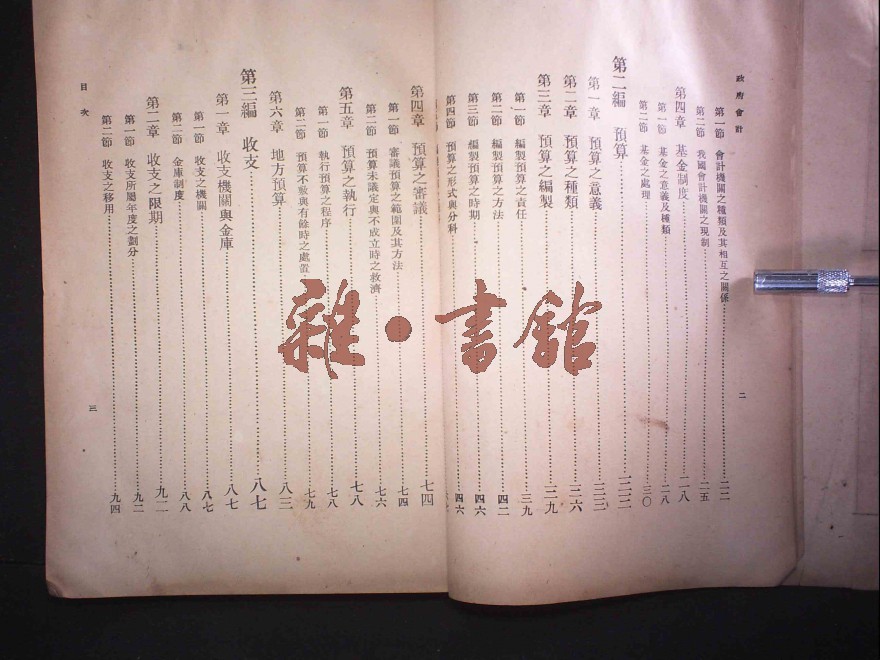 政府會計
二
第一節 會計機關之種類及其相互之關係 二二
第二節 我國會計機關之現制 二五
第四章 基金制度 二八
第一節 基金之意義及種類 二八
第二節 基金之處理 三〇
第二編 預算 三三
第一章 預算之意義 三三
第二章 預算之種類 三六
第三章 預算之編製 三九
第一節 編製預算之責任 三九
第二節 編製預算之方法 四二
第三節 編製預算之時期 四六
第四節 預算之形式與分科 四六
第四章 預算之審議 七四
第一節 審議預算之範圍及其方法 七四
第二節 預算未議定與不成立時之救濟 七六
第五章 預算之執行 七八
第一節 執行預算之程序 七八
第二節 預算不敷與有餘時之處置 七九
第六章 地方預算 八三
第三編 收支 八七
第一章 收支機關與金庫 八七
第一節 收支之機關 八七
第二節 金庫制度 八八
第二章 收支之限期 九二
第一節 收支所屬年度之劃分 九二
第二節 收支之移用 九四
目次
三
雜·書館